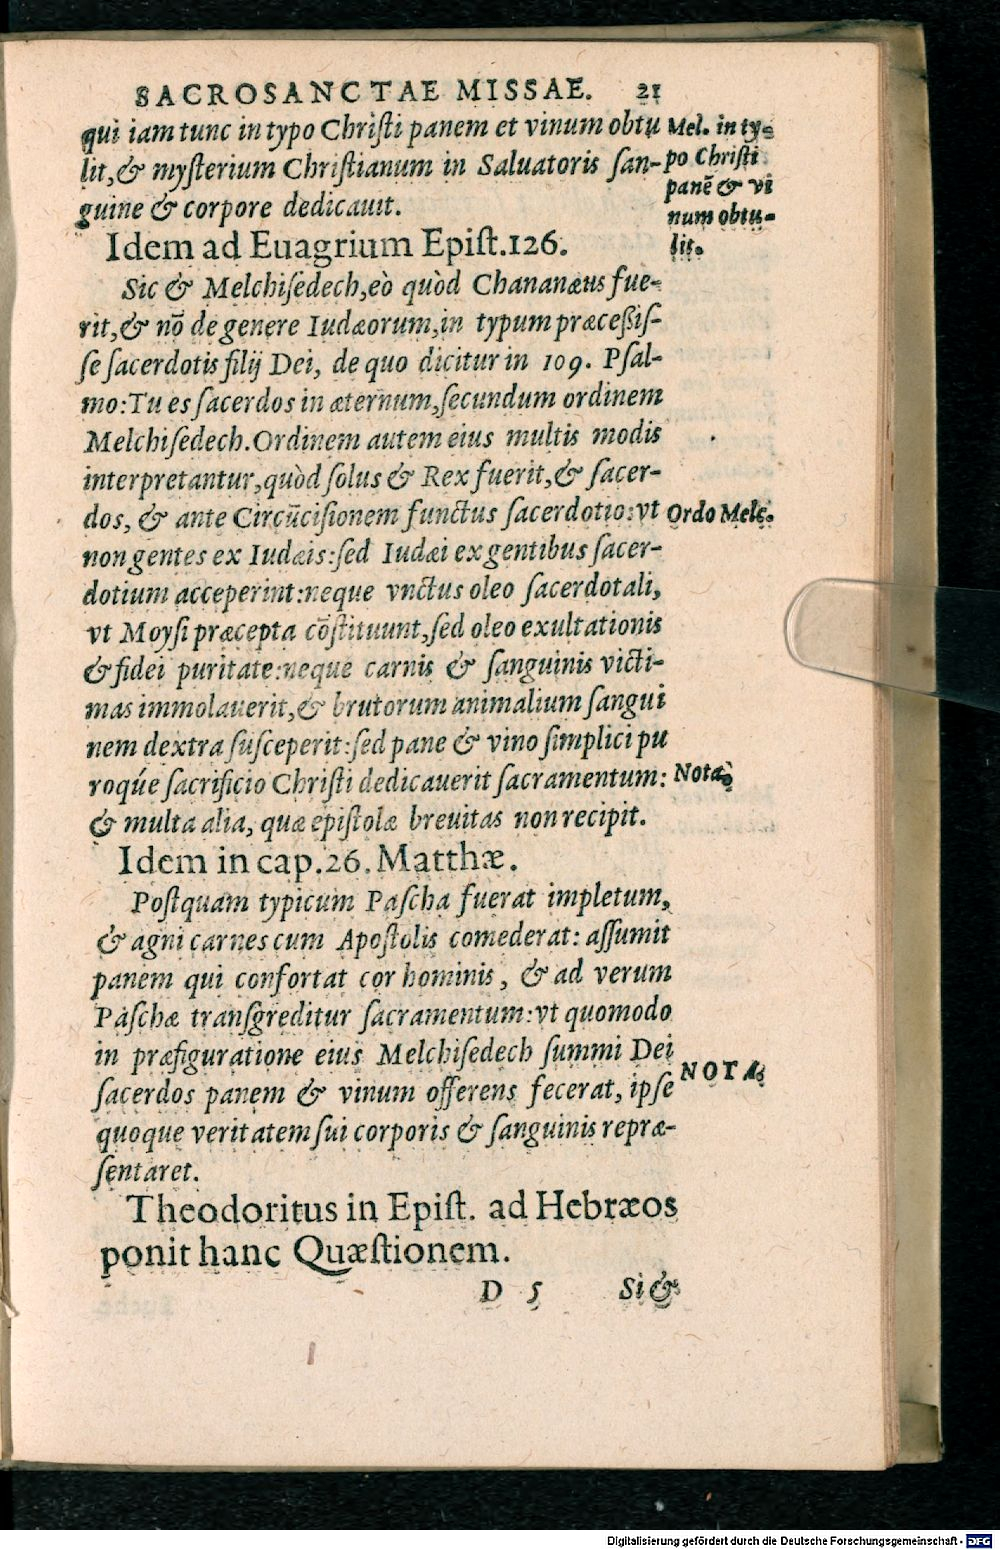 SACROSANCTAE MISSAE. 21
qui iam tunc in typo Chriſti panem et vinum obtu
lit,& myſterium Chriſtianum in Saluatoris ſan-
guine & corpore dedicauit.
Mel. in ty-
po Chriſti
panē & vi
num obtu-
lit.
Idem ad Euagrium Epiſt.126.
Sic & Melchiſedech,eò quòd Chananæus fue-
rit,& nō de genere Iudæorum,in typum præceßiſ-
ſe ſacerdotis filij Dei, de quo dicitur in 109. Pſal-
mo:Tu es ſacerdos in æternum,ſecundum ordinem
Melchiſedech.Ordinem autem eius multis modis
interpretantur,quòd ſolus & Rex fuerit,& ſacer-
dos, & ante Circūciſionem functus ſacerdotio:vt
Ordo Melc.
non gentes ex Iudæis:ſed Iudæi ex gentibus ſacer-
dotium acceperint:neque vnctus oleo ſacerdotali,
vt Moyſi præcepta cōſtituunt,ſed oleo exultationis
& fidei puritate:neque carnis & ſanguinis victi-
mas immolauerit,& brutorum animalium ſangui
nem dextra ſuſceperit:ſed pane & vino ſimplici pu
roqúe ſacrificio Chriſti dedicauerit ſacramentum:
Nota.
& multa alia, quæ epiſtolæ breuitas non recipit.
Idem in cap.26.Matthæ.
Poſtquam typicum Paſcha fuerat impletum,
& agni carnes cum Apoſtolis comederat: aſſumit
panem qui confortat cor hominis, & ad verum
Paſchæ tranſgreditur ſacramentum:vt quomodo
in præfiguratione eius Melchiſedech ſummi Dei
NOTA.
ſacerdos panem & vinum offerens fecerat, ipſe
quoque veritatem ſui corporis & ſanguinis repræ-
ſentaret.
Theodoritus in Epiſt. ad Hebræos
ponit hanc Quæſtionem.
D 5 Si &
Digitalisierung gefördert durch die Deutsche Forschungsgemeinschaft - DFG